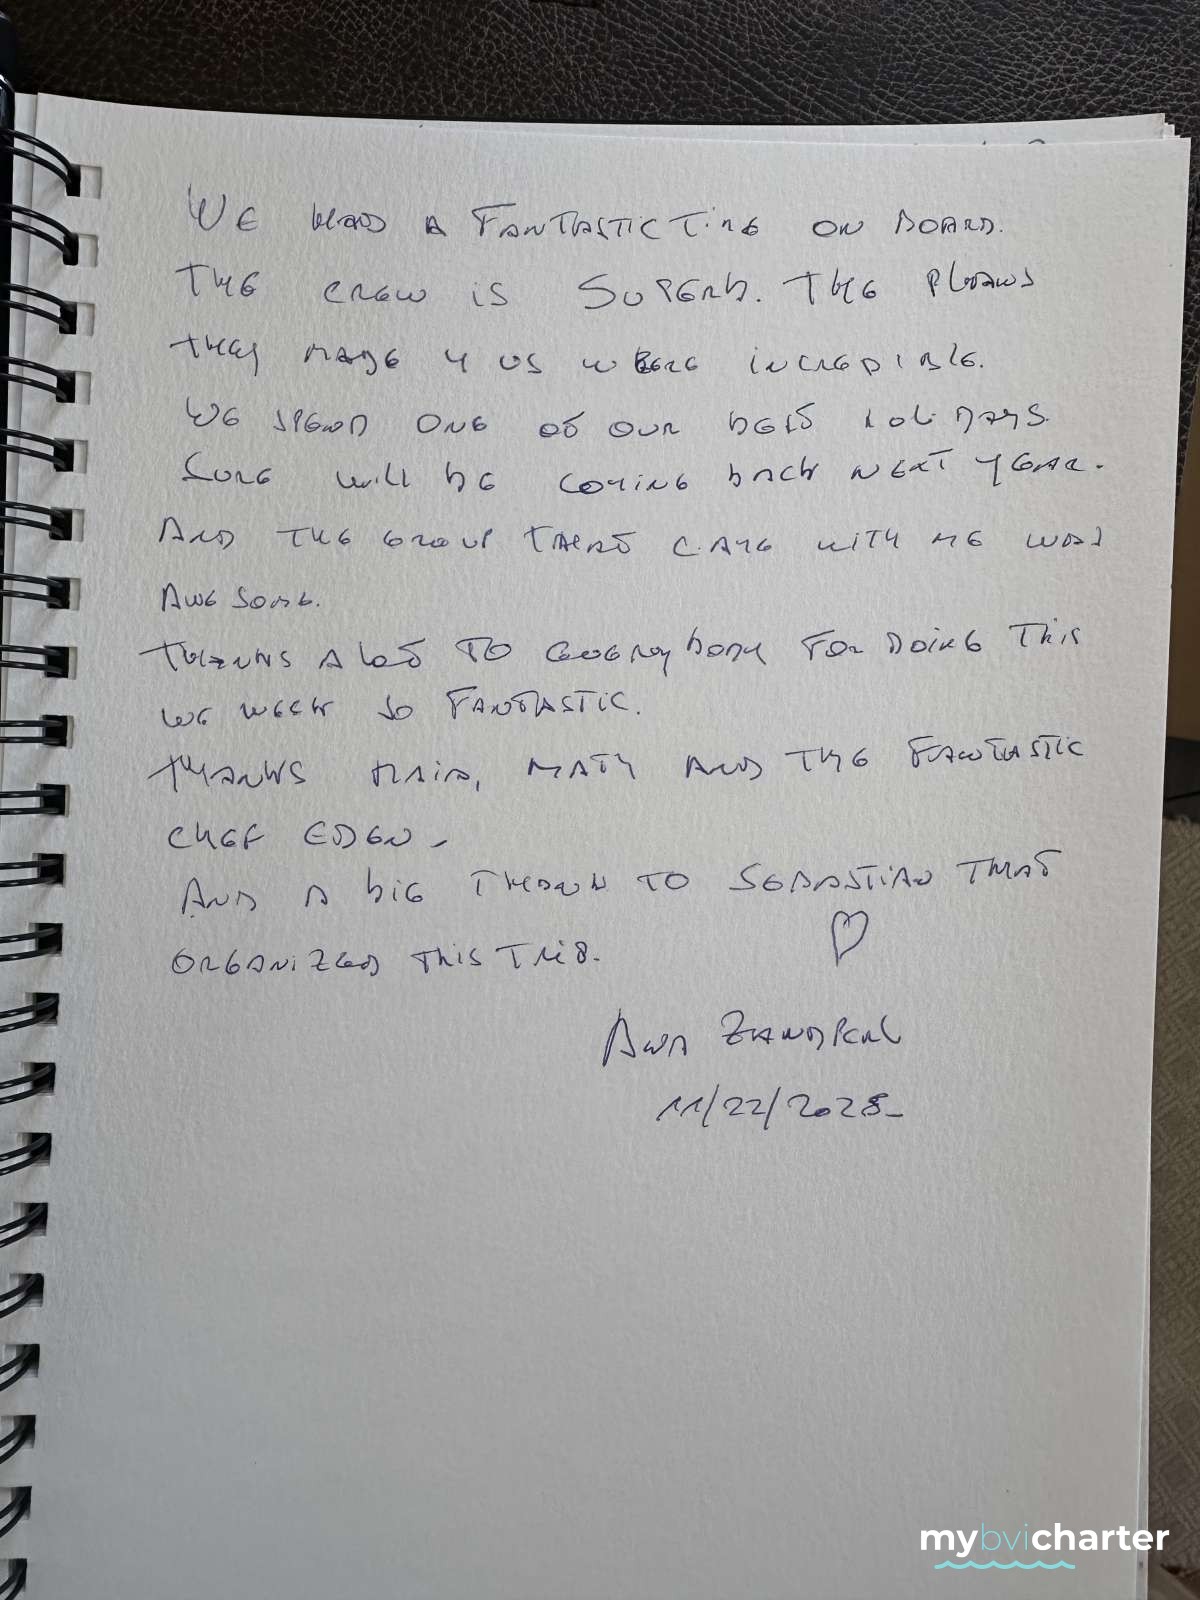 WE HAD A FANTASTIC TIME ON BOARD.
THE CREW IS SUPERB. THE PLANS
THEY MADE 4 US WERE INCREDIBLE.
WE SPEND ONE OF OUR BEST HOLIDAYS.
SURE WILL BE COMING BACK NEXT YEAR.
AND THE GROUP THAT CAME WITH ME WAS
AWESOME.
THANKS A LOT TO EVERYBODY FOR DOING THIS
WE WEEK SO FANTASTIC.
THANKS MATY AND THE FANTASTIC
CHEF EDEN -
AND A BIG THANK TO SEBASTIAN THAT
ORGANIZED THIS TRIP.
ANA
mybvicharter